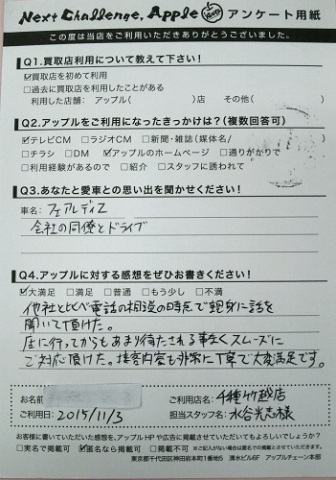 Next Challenge, Apple アンケート用紙
この度は当店をご利用いただきありがとうございました。
Q1.買取店利用について教えて下さい!
☑買取店を初めて利用
□過去に買取店を利用したことがある
利用した店舗: アップル( )店 その他( )
Q2.アップルをご利用になったきっかけは?(複数回答可)
☑テレビCM □ラジオCM □新聞・雑誌(媒体名/ )
□チラシ □DM ☑アップルのホームページ □通りがかりで
□利用経験があるので □紹介 □スタッフに誘われて
Q3.あなたと愛車との思い出を聞かせください!
車名: フェアレディZ
会社の同僚とドライブ
Q4.アップルに対する感想をぜひお書きください!
☑大満足 □満足 □普通 □もう少し □不満
他社と比べ電話の相談の時点で親身に話を
聞いて頂けた。
店に行ってからもあまり待たされる事なくスムーズに
ご対応頂けた。接客内容も非常に丁寧で大変満足です。
お名前 ご利用店名: 千種竹越店
ご利用日: 2015/11/3 担当スタッフ名: 水谷光志様
お客様に書いていただいた感想を、アップルHPや広告に掲載させていただいてもよろしいでしょうか?
□実名で掲載可 ☑匿名なら掲載可 □掲載不可
東京都千代田区神田岩本町1番地5 清水ビル6F アップルチェーン本部